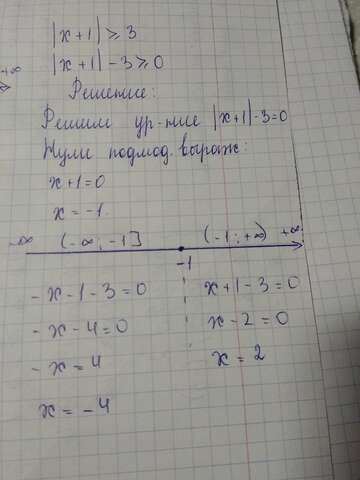 |x+1| ⩾ 3
|x+1| - 3 ⩾ 0
Решение:
Решим ур-ние |x+1|-3=0
Нули подмод. выраж:
x+1=0
x=-1.
-∞ (-∞; -1] (-1; +∞) +∞
-1
-x-1-3=0 x+1-3=0
-x-4=0 x-2=0
-x=4 x=2
x=-4